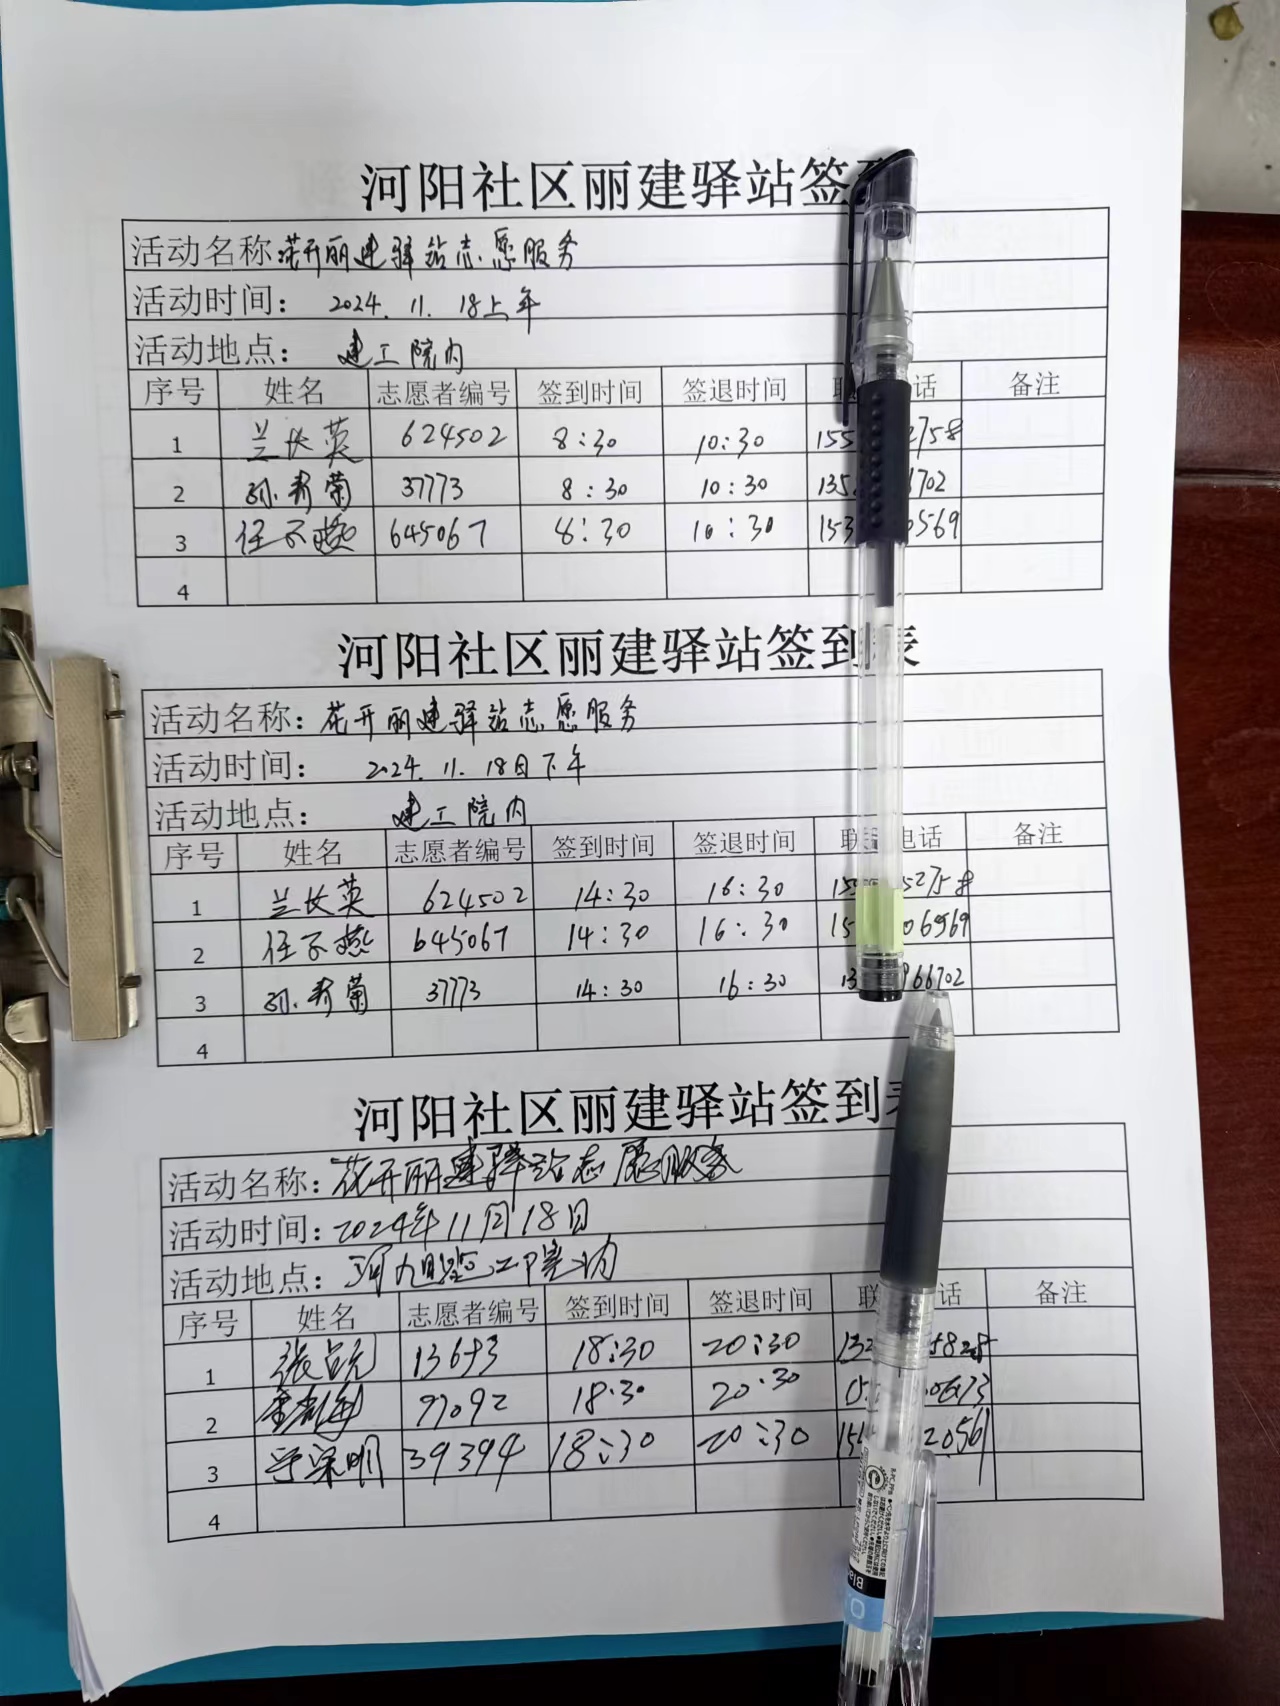 河阳社区丽建驿站签到
活动名称:花开丽建驿站志愿服务
活动时间: 2024.11.18上午
活动地点: 建工院内
序号 姓名 志愿者编号 签到时间 签退时间 联 话 备注
1 兰长英 624502 8:30 10:30 155 2758
2 37773 8:30 10:30 135 702
3 645067 8:30 10:30 153 0569
4
河阳社区丽建驿站签到表
活动名称:花开丽建驿站志愿服务
活动时间: 2024.11.18日下午
活动地点: 建工院内
序号 姓名 志愿者编号 签到时间 签退时间 联 电话 备注
1 兰长英 624502 14:30 16:30 15 52758
2 645067 14:30 16:30 15 06569
3 37773 14:30 16:30 13 966702
4
河阳社区丽建驿站签到表
活动名称:花开丽建驿站志愿服务
活动时间:2024年11月18日
活动地点:
序号 姓名 志愿者编号 签到时间 签退时间 联 话 备注
1 18:30 20:30 132
2 97092 18:30 20:30
3 39394 18:30 20:30 2056
4